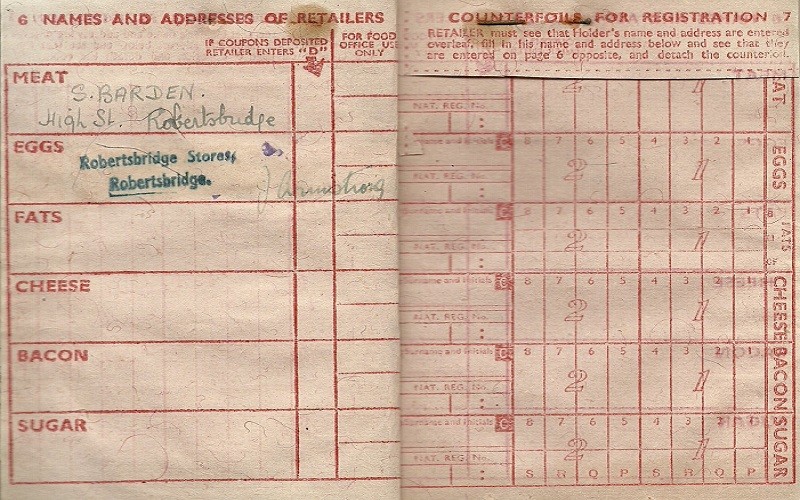 6 NAMES AND ADDRESSES OF RETAILERS
IF COUPONS DEPOSITED
RETAILER ENTERS "D"
FOR FOOD
OFFICE USE
ONLY
MEAT
S. BARDEN.
High St. Robertsbridge
EGGS
Robertsbridge Stores,
Robertsbridge.
J Armstrong
FATS
CHEESE
BACON
SUGAR
COUNTERFOILS FOR REGISTRATION 7
RETAILER must see that Holder's name and address are entered
overleaf, fill in his name and address below and see that they
are entered on page 6 opposite, and detach the counterfoil.
2 1
NAT. REG. No.
:
Surname and Initials 8 7 6 5 4 3 2 1
2 1
NAT. REG. No.
:
EGGS
Surname and Initials 8 7 6 5 4 3 2 1
2 1
NAT. REG. No.
:
FATS
Surname and Initials 8 7 6 5 4 3 2 1
2 1
NAT. REG. No.
:
CHEESE
Surname and Initials 8 7 6 5 4 3 2 1
2 1
NAT. REG. No.
:
BACON
Surname and Initials C 8 7 6 5 4 3 2 1
2 1
NAT. REG. No.
: S R Q P S R Q P
SUGAR